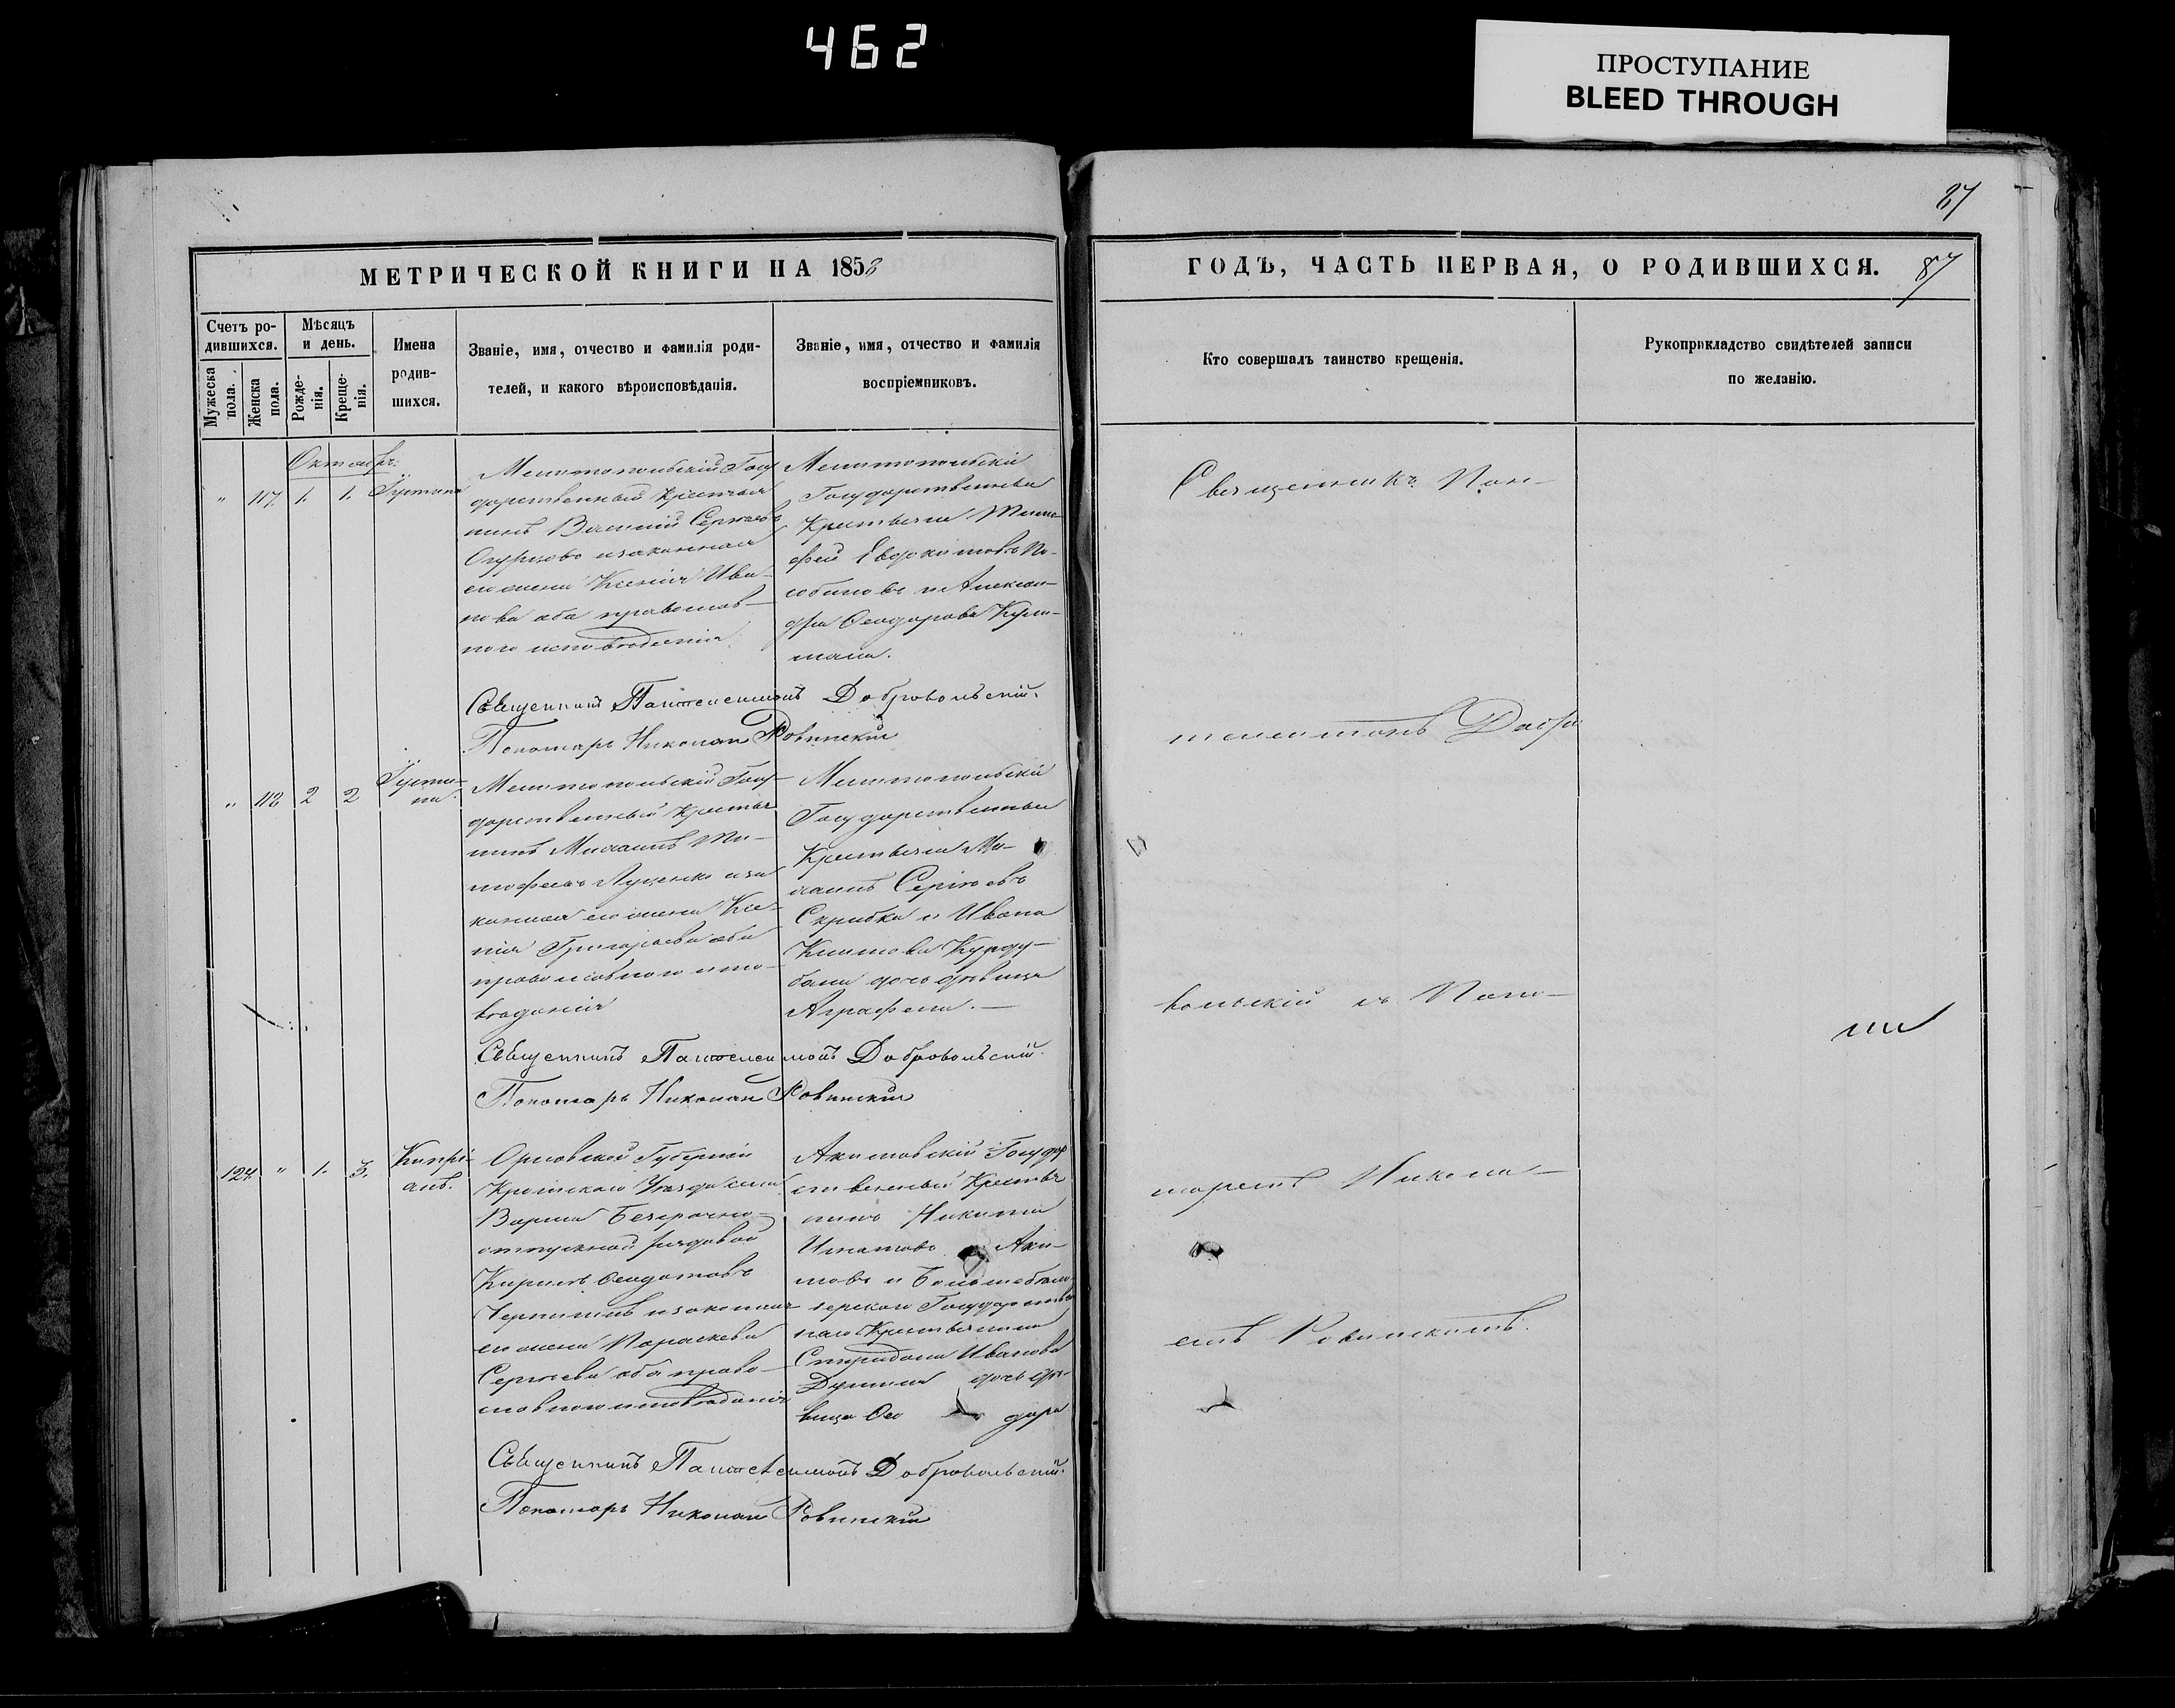 462
ПРОСТУПАНИЕ
BLEED THROUGH
87
МЕТРИЧЕСКОЙ КНИГИ НА 1858
ГОДЪ, ЧАСТЬ ПЕРВАЯ, О РОДИВШИХСЯ.
87
Счетъ ро-
дившихся.
Мѣсяцъ
и день.
Мужеска
пола.
Женска
пола.
Рожде-
нія.
Креще-
нія.
Имена
родив-
шихся.
Званіе, имя, отчество и фамилія роди-
телей, и какого вѣроисповѣданія.
Званіе, имя, отчество и фамилія
воспріемниковъ.
Кто совершалъ таинство крещенія.
Рукоприкладство свидѣтелей записи
по желанію.
Октябрь.
" 117. 1. 1. Іустина
Мелитопольскій Госу
дарственный Крестья
нинъ Василій Сергѣевъ
и законная
его жена Ксенія Ива-
нова оба православ-
наго исповѣданія.
Мелитопольскіе
Государственные
Крестьяне Тимо-
фей Евдокимовъ
и Алексан-
дра Ѳеодорова
Священникъ Пантелеимонъ Добровольскій.
Пономарь Николай Ровинскій
" 118 2 2 Іусти-
на.
Мелитопольскій Госу-
дарственный Крестья
нинъ Михаилъ Ти-
мофеевъ Луценко и за
конная его жена Ксе-
нія Григорьева оба
православнаго испо-
вѣданія
Мелитопольскіе
Государственные
Крестьяне Ми-
хаилъ Сергѣевъ
Скрибка и Ивана
дочь дѣвица
Аграфена.
Священникъ Пантелеимонъ Добровольскій.
Пономарь Николай Ровинскій
124. " 1. 3. Кипрі-
анъ.
Орловской Губерніи
Кромскаго Уѣзда села
безсрочно-
отпускной рядовой
Кирилъ Ѳеодотовъ
и законная
его жена Параскева
Сергѣева оба право-
славнаго исповѣданія
Акимовскій Государ
ственный Крестья
нинъ Никита
Игнатовъ Аки-
мовъ и
Государствен
наго Крестьянина
Спиридона Иванова
дочь дѣ-
вица Ѳео дора
Священникъ Пантелеимонъ Добровольскій.
Пономарь Николай Ровинскій
Священникъ Пан-
телеимонъ Добро
вольскій съ Поно-
маремъ Никола-
емъ Ровинскимъ.